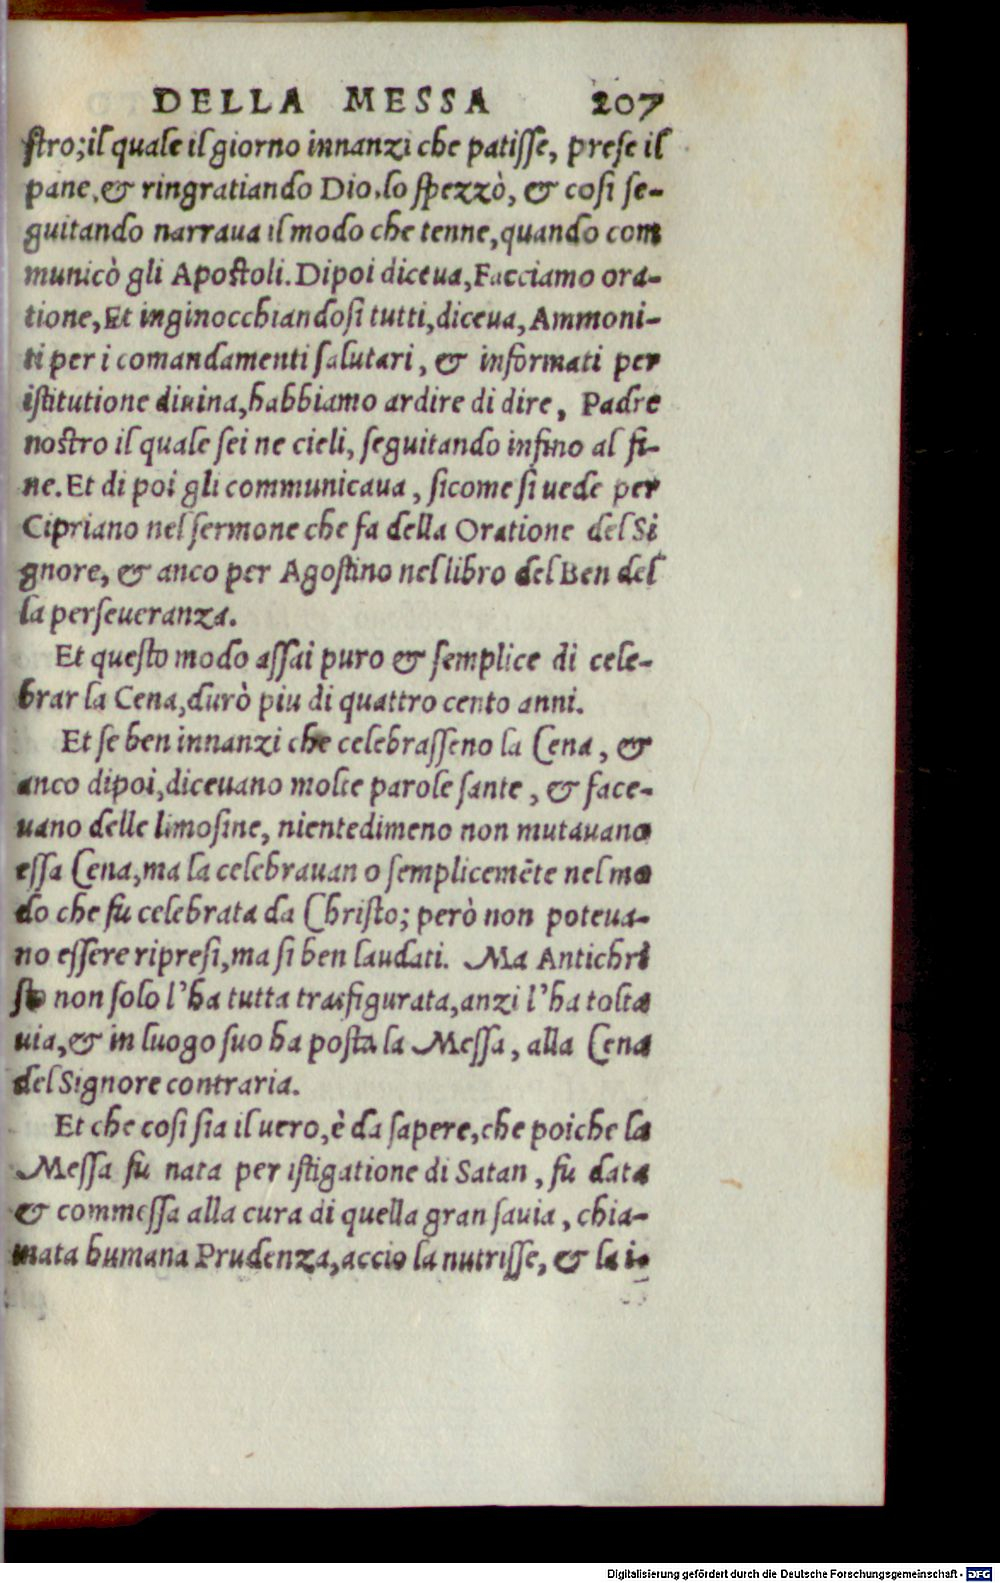 DELLA MESSA 207
stro; il quale il giorno innanzi che patisse, prese il
pane, & ringratiando Dio, lo spezzò, & cosi se-
guitando narraua il modo che tenne, quando com
municò gli Apostoli. Dipoi diceua, Facciamo ora-
tione, Et inginocchiandosi tutti, diceua, Ammoni-
ti per i comandamenti salutari, & informati per
istitutione diuina, habbiamo ardire di dire, Padre
nostro il quale sei ne cieli, seguitando infino al fi-
ne. Et di poi gli communicaua, sicome si uede per
Cipriano nel sermone che fa della Oratione del Si
gnore, & anco per Agostino nel libro del Ben del
la perseueranza.
Et questo modo assai puro & semplice di cele-
brar la Cena, durò piu di quattro cento anni.
Et se ben innanzi che celebrasseno la Cena, &
anco dipoi, diceuano molte parole sante, & face-
uano delle limosine, nientedimeno non mutauano
essa Cena, ma la celebrauan o semplicemēte nel mo
do che fu celebrata da Christo; però non poteua-
no essere ripresi, ma si ben laudati. Ma Antichri
sto non solo l'ha tutta trasfigurata, anzi l'ha tolta
uia, & in luogo suo ha posta la Messa, alla Cena
del Signore contraria.
Et che cosi sia il uero, è da sapere, che poiche la
Messa fu nata per istigatione di Satan, fu data
& commessa alla cura di quella gran sauia, chia-
mata humana Prudenza, accio la nutrisse, & la i-
Digitalisierung gefördert durch die Deutsche Forschungsgemeinschaft - DFG